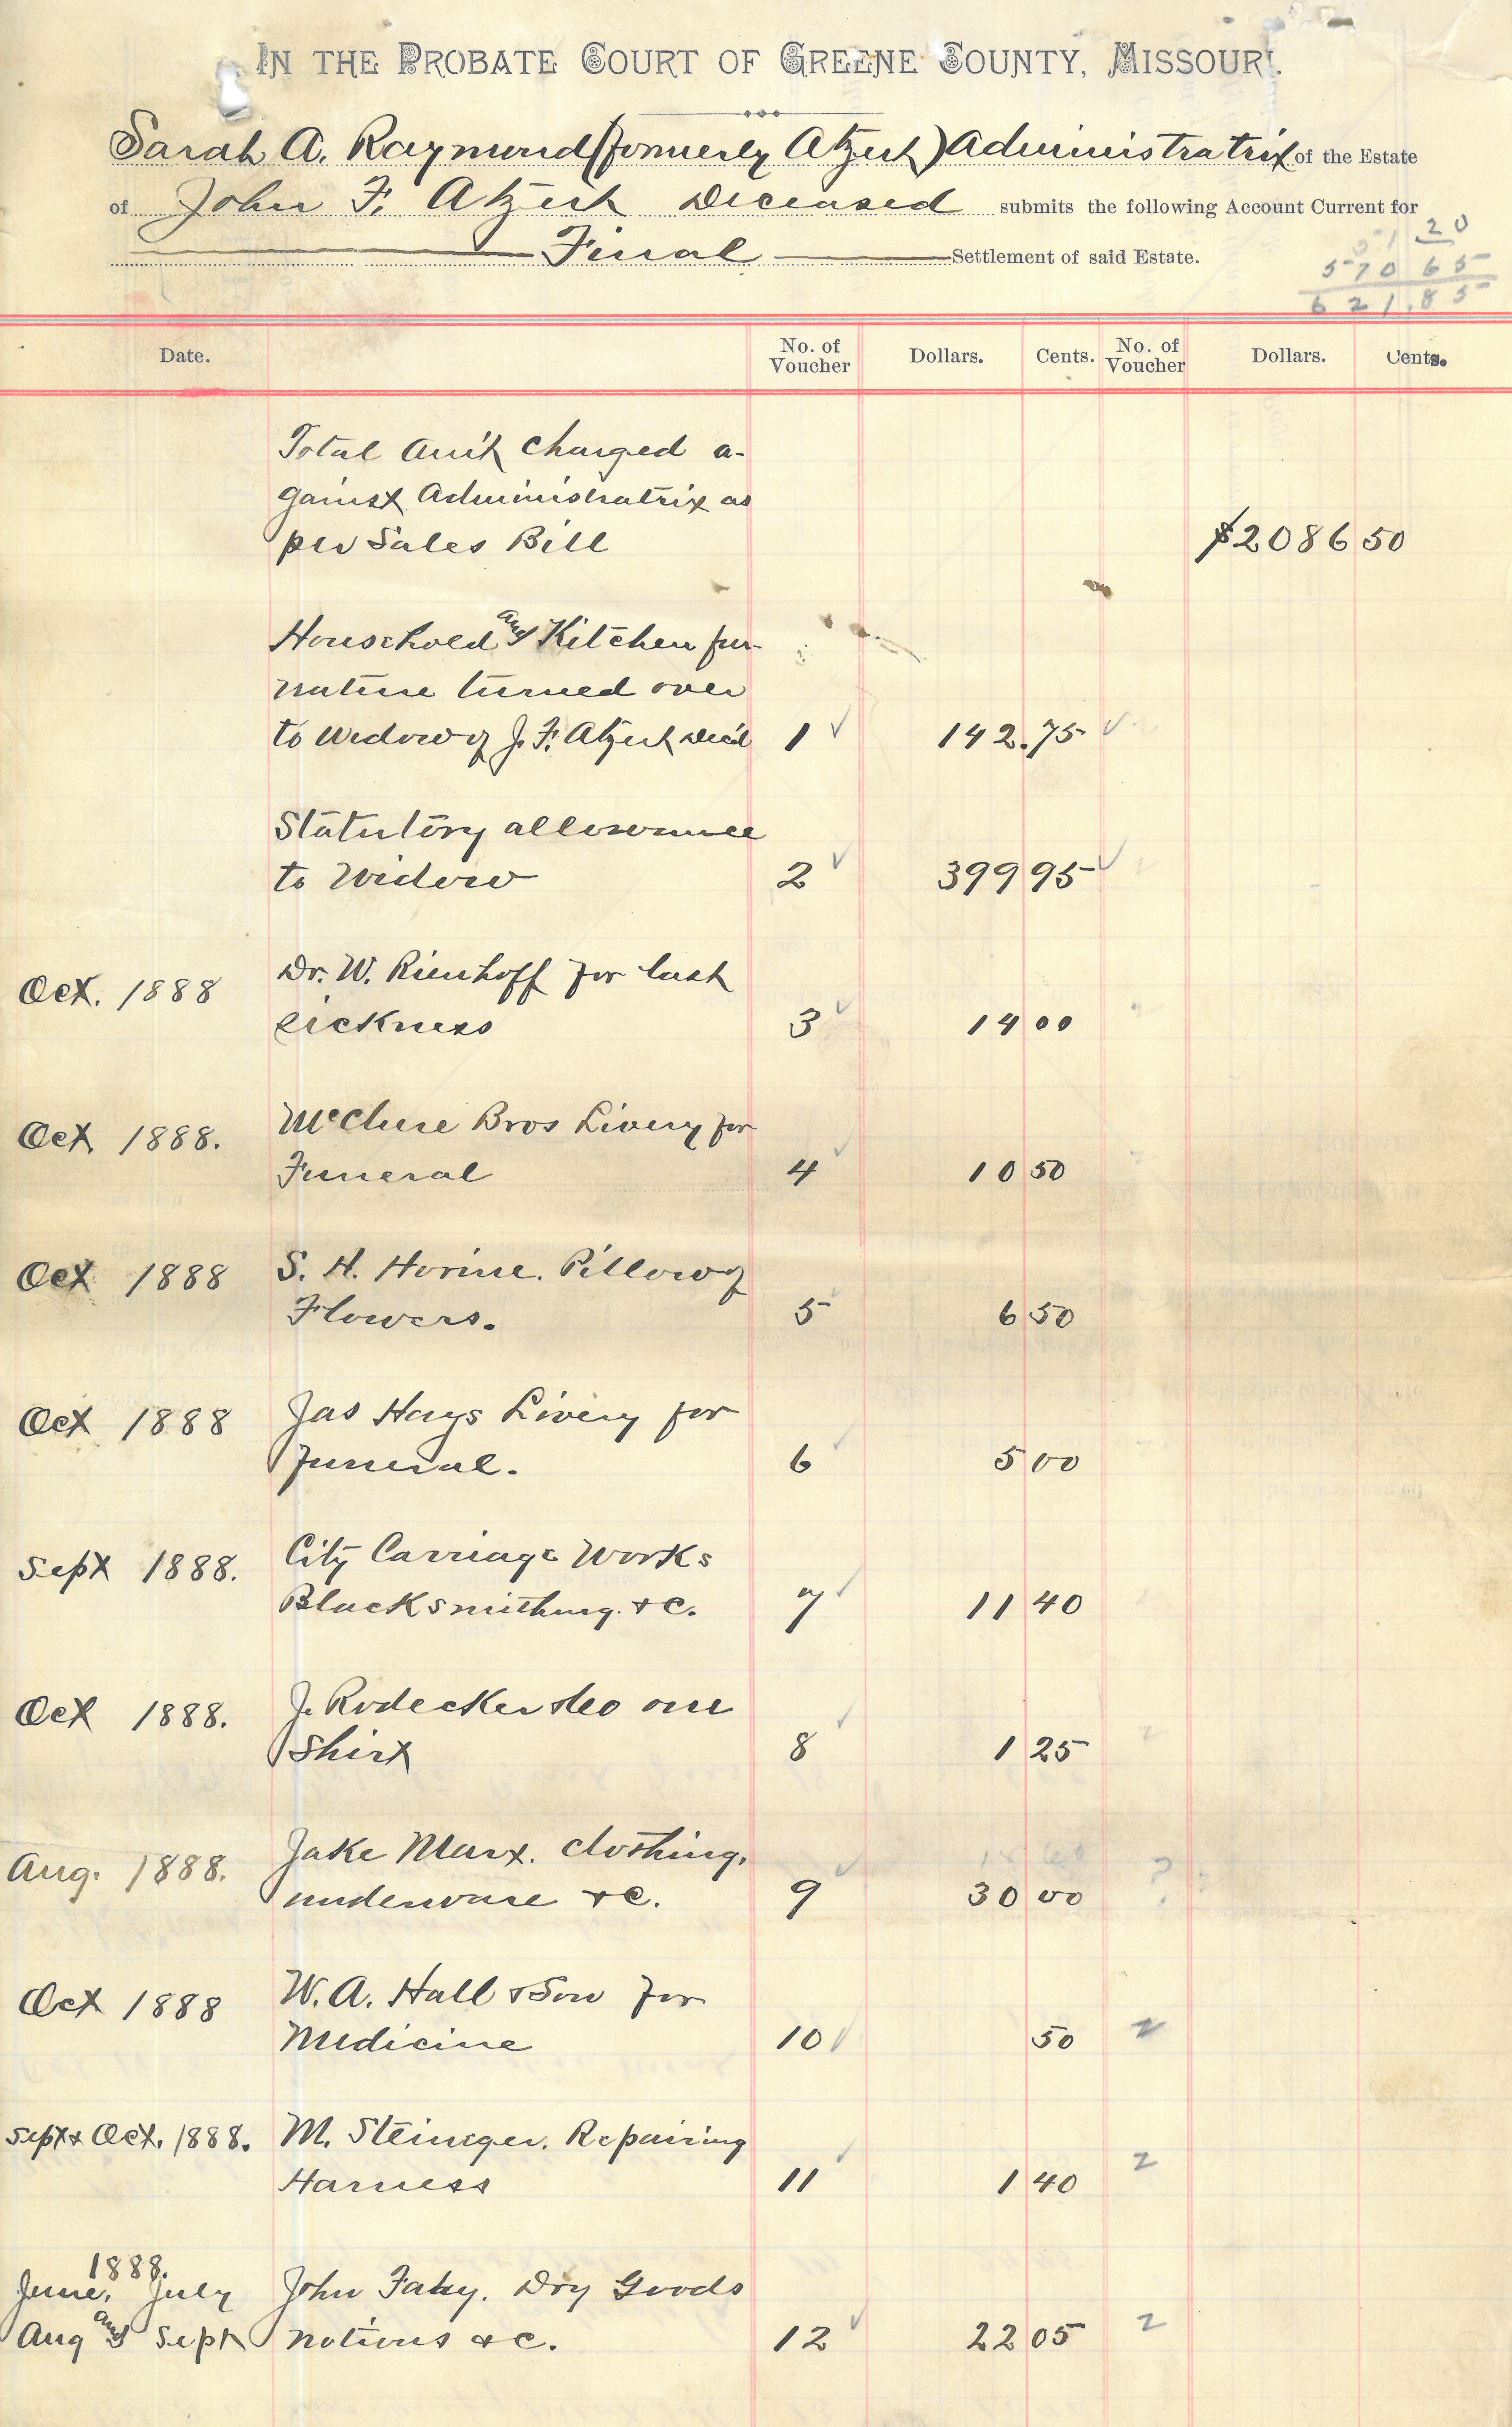 IN THE PROBATE COURT OF GREENE COUNTY, MISSOURI.
Sarah A. Raymond (formerly Atzert) Administratrix of the Estate
of John F. Atzert Deceased submits the following Account Current for
Final Settlement of said Estate.
51 20
570 65
621.85
Date. No. of Voucher Dollars. Cents. No. of Voucher Dollars. Cents.
Total Am't Charged a-
gainst Administratrix as
per Sales Bill $2086 50
Household and Kitchen fur-
nature turned over
to Widow of J. F. Atzert Dec'd 1 ✓ 142.75 ✓
Statutory allowance
to Widow 2 ✓ 399 95 ✓
Oct. 1888 Dr. W. Rienhoff for last
sickness 3 ✓ 14 00
Oct 1888. McClure Bros Livery for
Funeral 4 ✓ 10 50
Oct 1888 S. H. Horine. Pillow of
Flowers. 5 6 50
Oct 1888 Jas Hays Livery for
funeral. 6 ✓ 5 00
Sept 1888. City Carriage Works
Blacksmithing. &c. 7 ✓ 11 40
Oct 1888. J. Rodecker &co one
Shirt 8 ✓ 1 25
Aug. 1888. Jake Marx. Clothing,
underware &c. 9 ✓ 30 00 ?
Oct 1888 W. A. Hall & Son for
Medicine 10 ✓ 50 2
Sept & Oct. 1888. M. Steineger. Repairing
Harness 11 ✓ 1 40 2
1888.
June, July John Fahy. Dry Goods
Aug and Sept notions &c. 12 ✓ 22 05 2